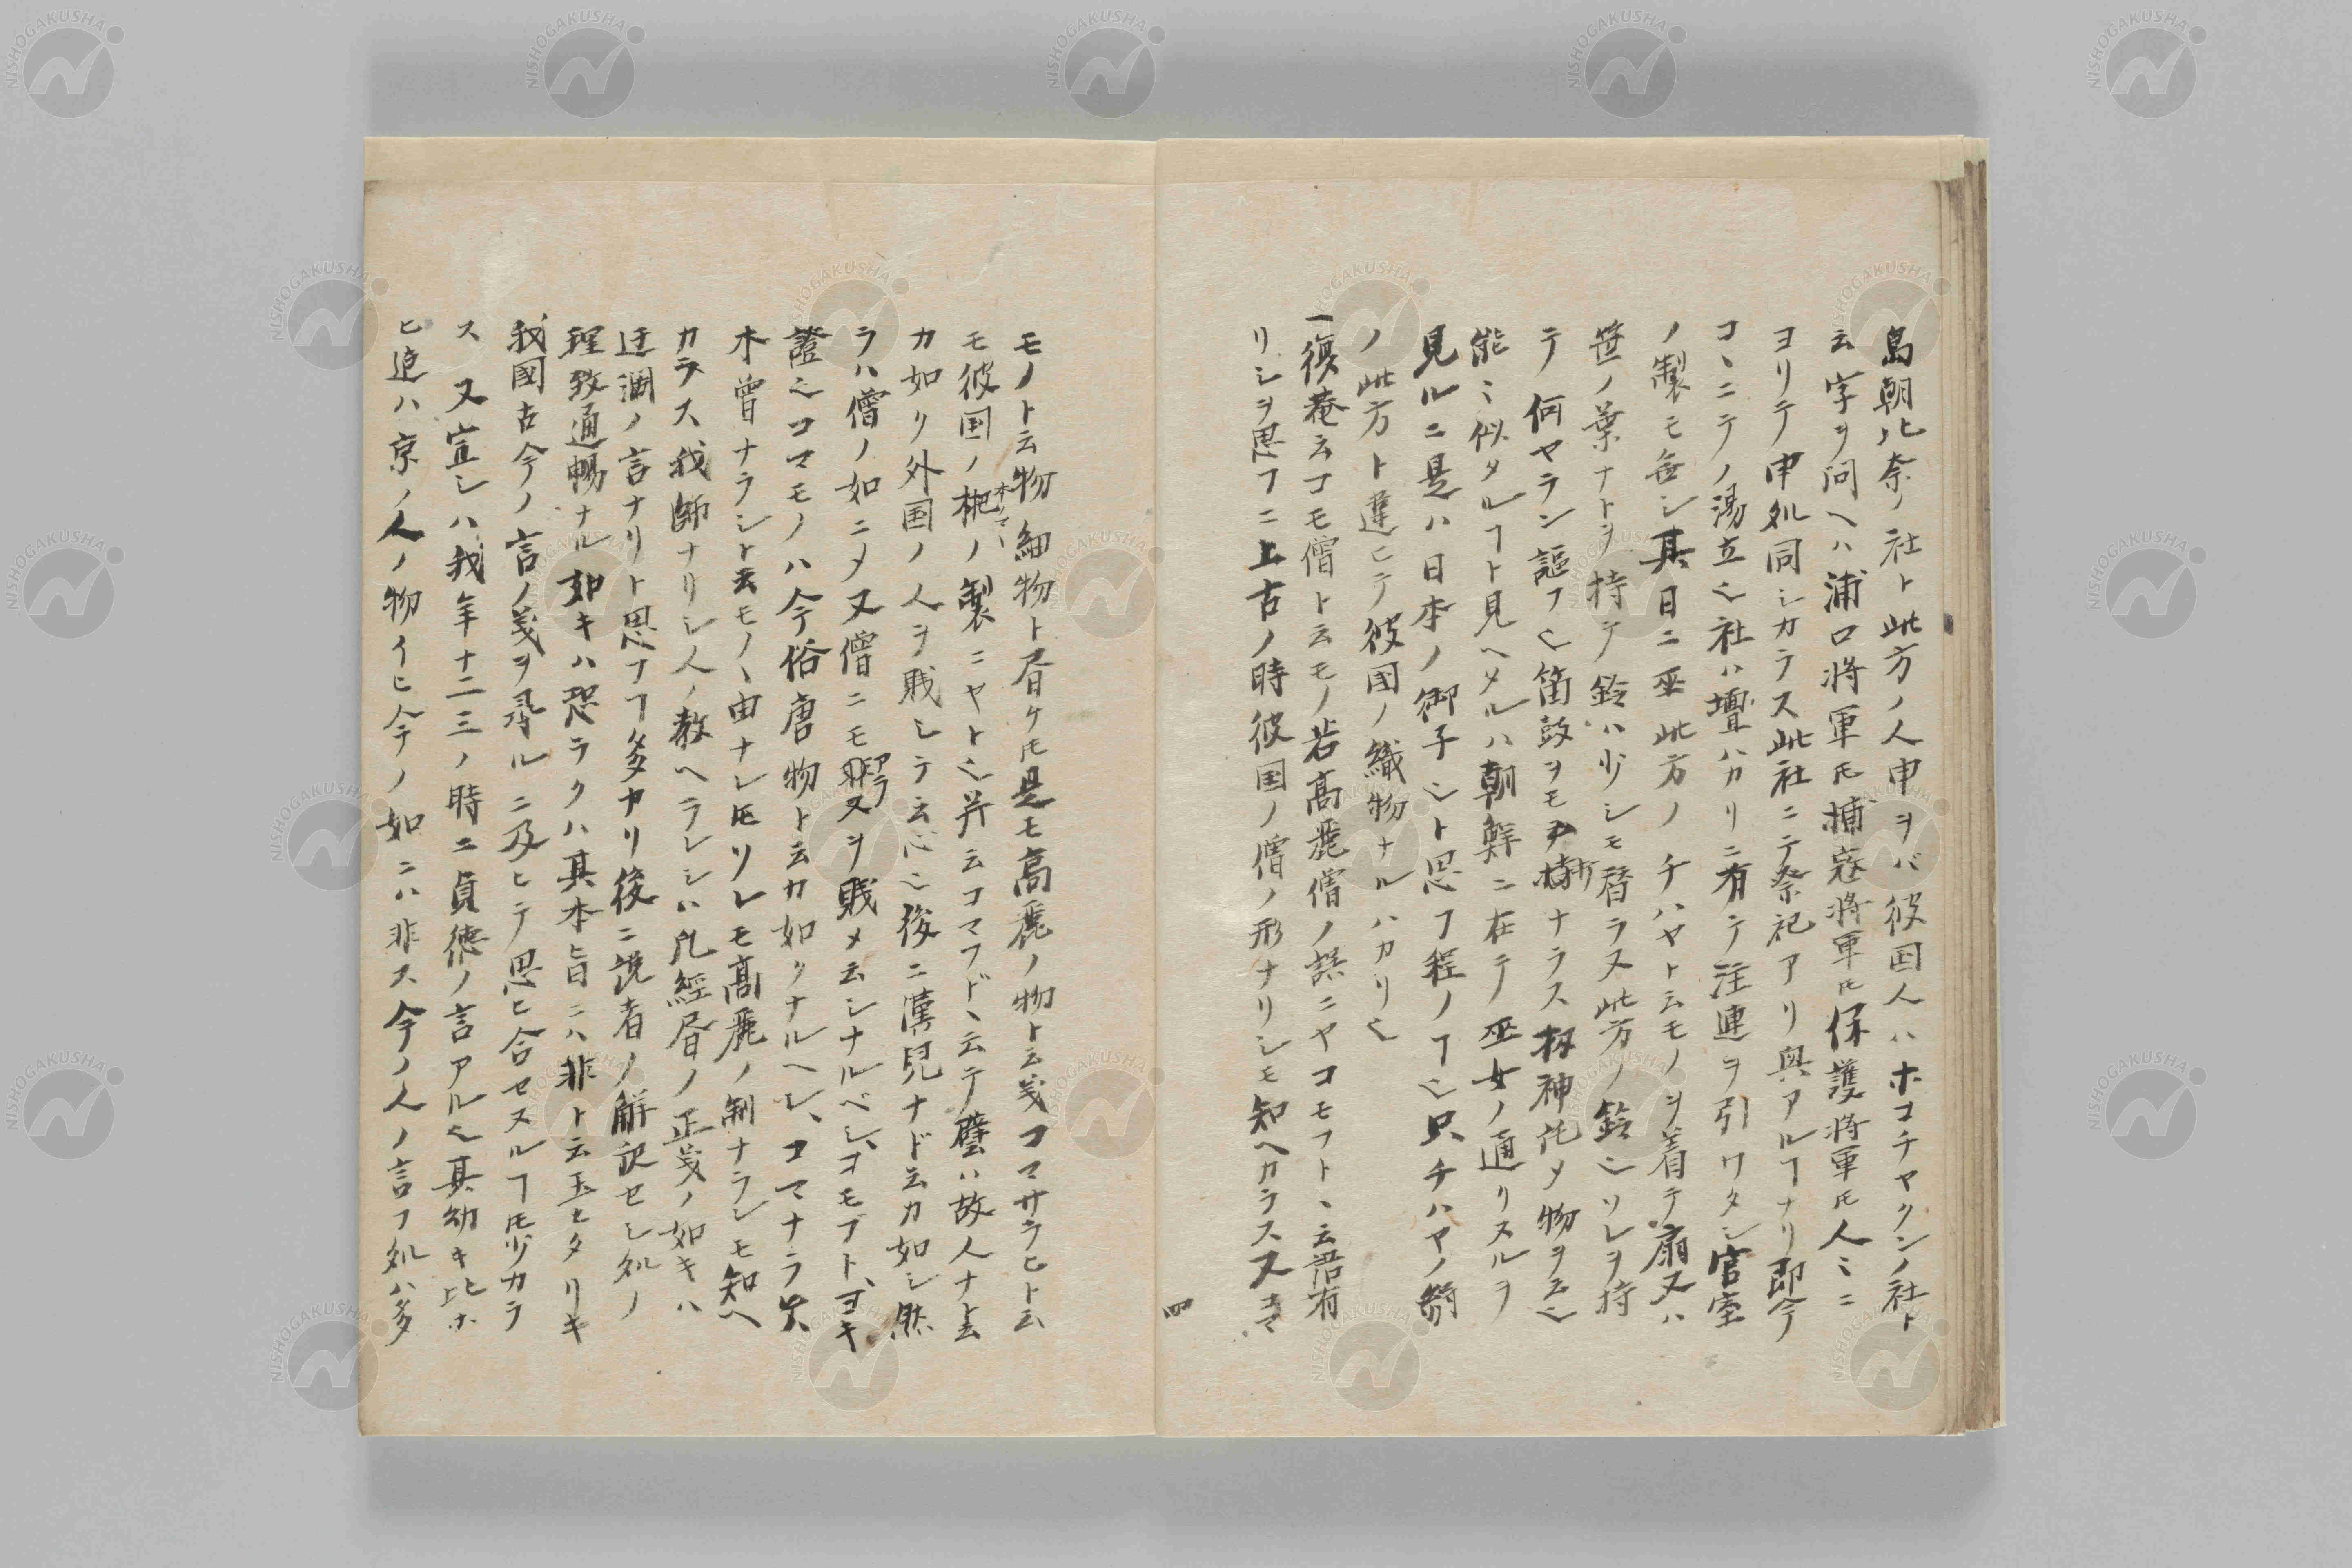 島朝比奈ノ社ト此方ノ人申ヲバ彼国人ハホコチヤクンノ社ト
云字ヲ問ヘハ浦口将軍𪜈捕寇将軍𪜈保護将軍𪜈人ミニ
ヨリテ申処同シカラス此社ニテ祭祀アリ與アルヿナリ即今
コヽニテノ湯立也社ハ壇ハカリニ有テ注連ヲ引ワタシ宮室
ノ製モ無シ其日ニ巫此方ノチハヤト云モノヲ着テ扇又ハ
笹ノ葉ナトヲ持テ鈴ハ少シモ替ラス此方ノ鈴也ソレヲ持
テ何ヤラン謳フ也笛鼓ヲモ拍ナラス扨神託メ物ヲ云也
能ミ似タルヿト見ヘタルハ朝鮮ニ在テ巫女ノ通リスルヲ
見ルニ是ハ日本ノ御子也ト思フ程ノヿ也只チハヤノ
ノ此方ト違ヒテ彼国ノ織物ナルハカリ也
一復菴云コモ僧ト云モノ若高麗僧ノ誤ニヤコモフトヽ云
リシヲ思フニ上古ノ時彼国ノ僧ノ形ナリシモ知ヘカラス又コマ
四
モノト云物細物ト書ケ𪜈是モ高麗ノ物ト云義コマサラヒト云
モ彼国ノ杷ノ製ニヤト也并云コマフドヽ云テ譬ハ故人ナト云
カ如リ外国ノ人ヲ賎シテ云心也後ニ漢児ナド云カ如シ然
ラハ僧ノ如ニメ又僧ニモ非スヲ賎メ云シナルベシ、コモブトヽヨキ
證也コマモノハ今俗唐物ト云カ如クナルヘシ、コマナラ
木曾ナラシト云モノヽ由ナレ𪜈ソレモ高麗ノ制ナランモ知ヘ
カラス我師ナリシ人ノ教ヘラレシハ凡經書ノ正義ノ如キハ
迂濶ノ言ナリト思フヿ多カリ後ニ説者ノ解説セシ処ノ
理致通暢ナル如キハ恐ラクハ其本旨ニハ非ト云玉ヒタリキ
我國古今ノ言ノ義ヲ尋ルニ及ヒテ思ヒ合セヌルヿ𪜈少カラ
ス 又宣シハ我年十二三ノ時ニ貞徳ノ言アル也其幼キ比ホ
ヒ迠ハ京ノ人ノ物イヒ今ノ如ニハ非ス今ノ人ノ言フ処ハ多